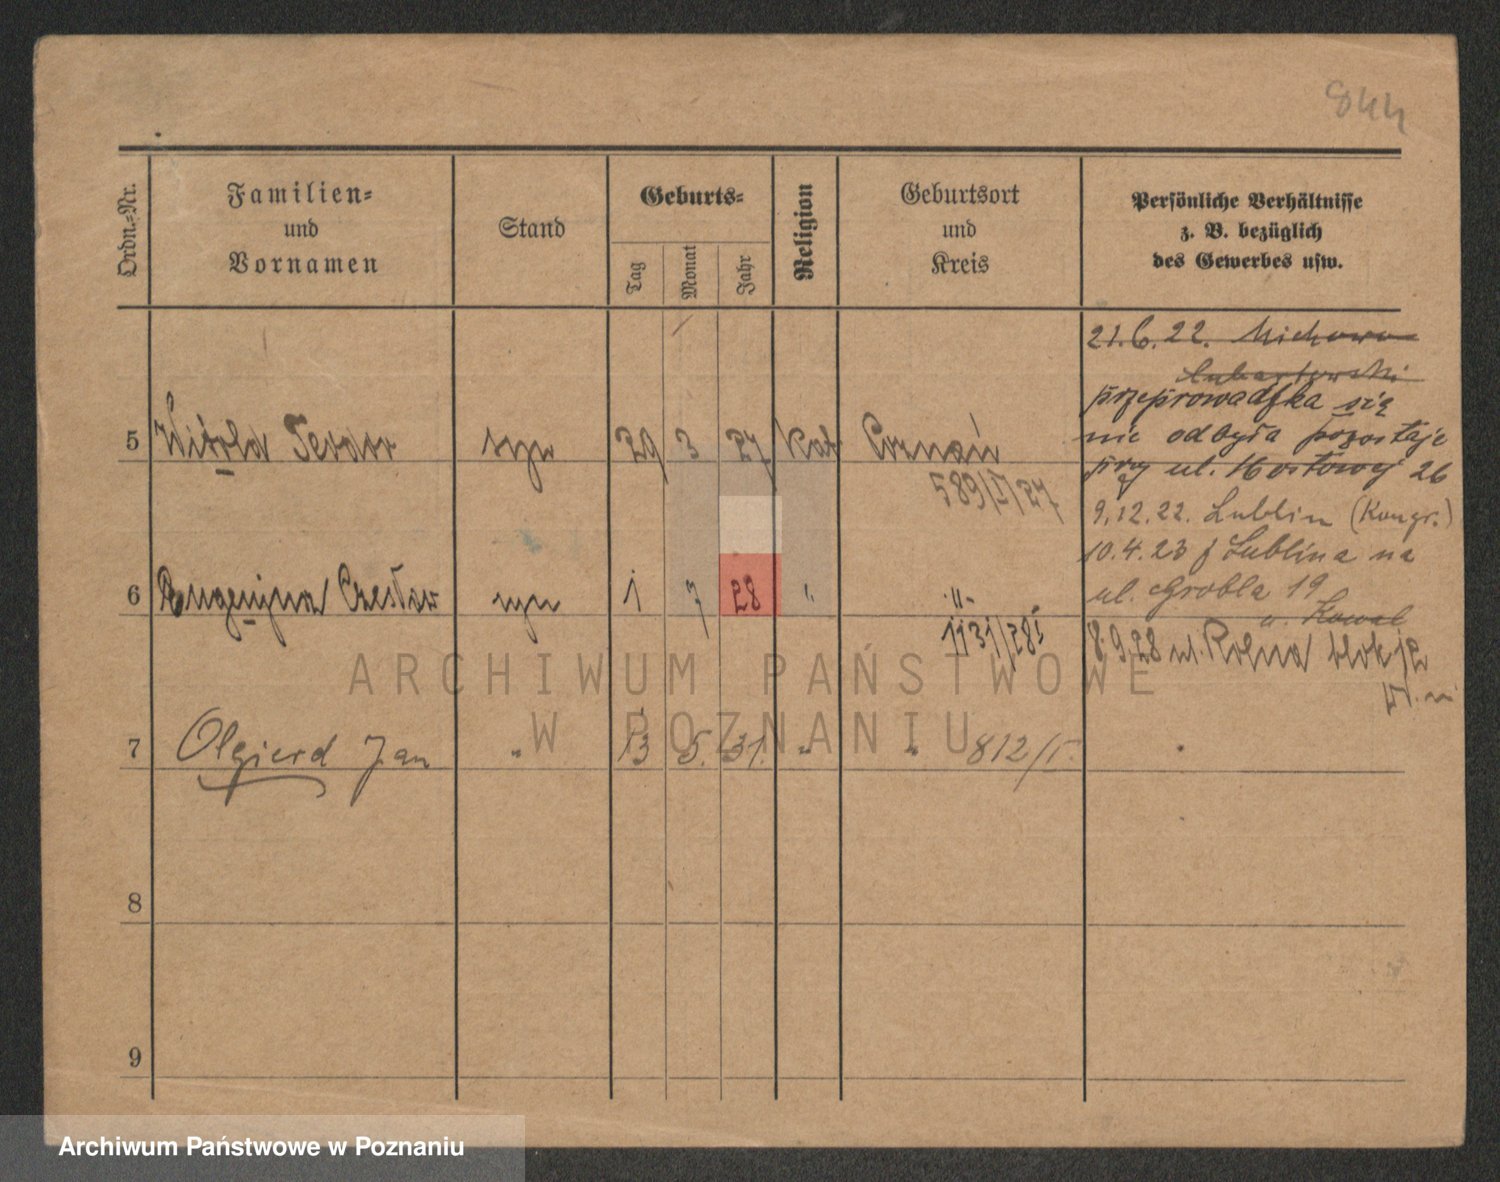 844
Ordn.-Nr.
Familien-
und
Vornamen
Stand
Geburts-
Tag
Monat
Jahr
Religion
Geburtsort
und
Kreis
Persönliche Verhältnisse
z. B. bezüglich
des Gewerbes usw.
21.6.22. Michowo
Lubartowski
przeprowadzka się
nie odbyła pozostaje
przy ul. Mostowej 26
5 Witold Teodor syn 29 3 27 Kat Poznań
589/I/27
9.12.22. Lublin (Kongr.)
10.4.23 z Lublina na
ul. Grobla 19
u. Kowal
6 Eugenjusz Czesław syn 1 7 28 " -"-
1131/28
8.9.28 ul. Rolna blok
7 Olgierd Jan " 13 5. 31. " " 812/I.
8
9
ARCHIWUM PAŃSTWOWE
W POZNANIU
Archiwum Państwowe w Poznaniu